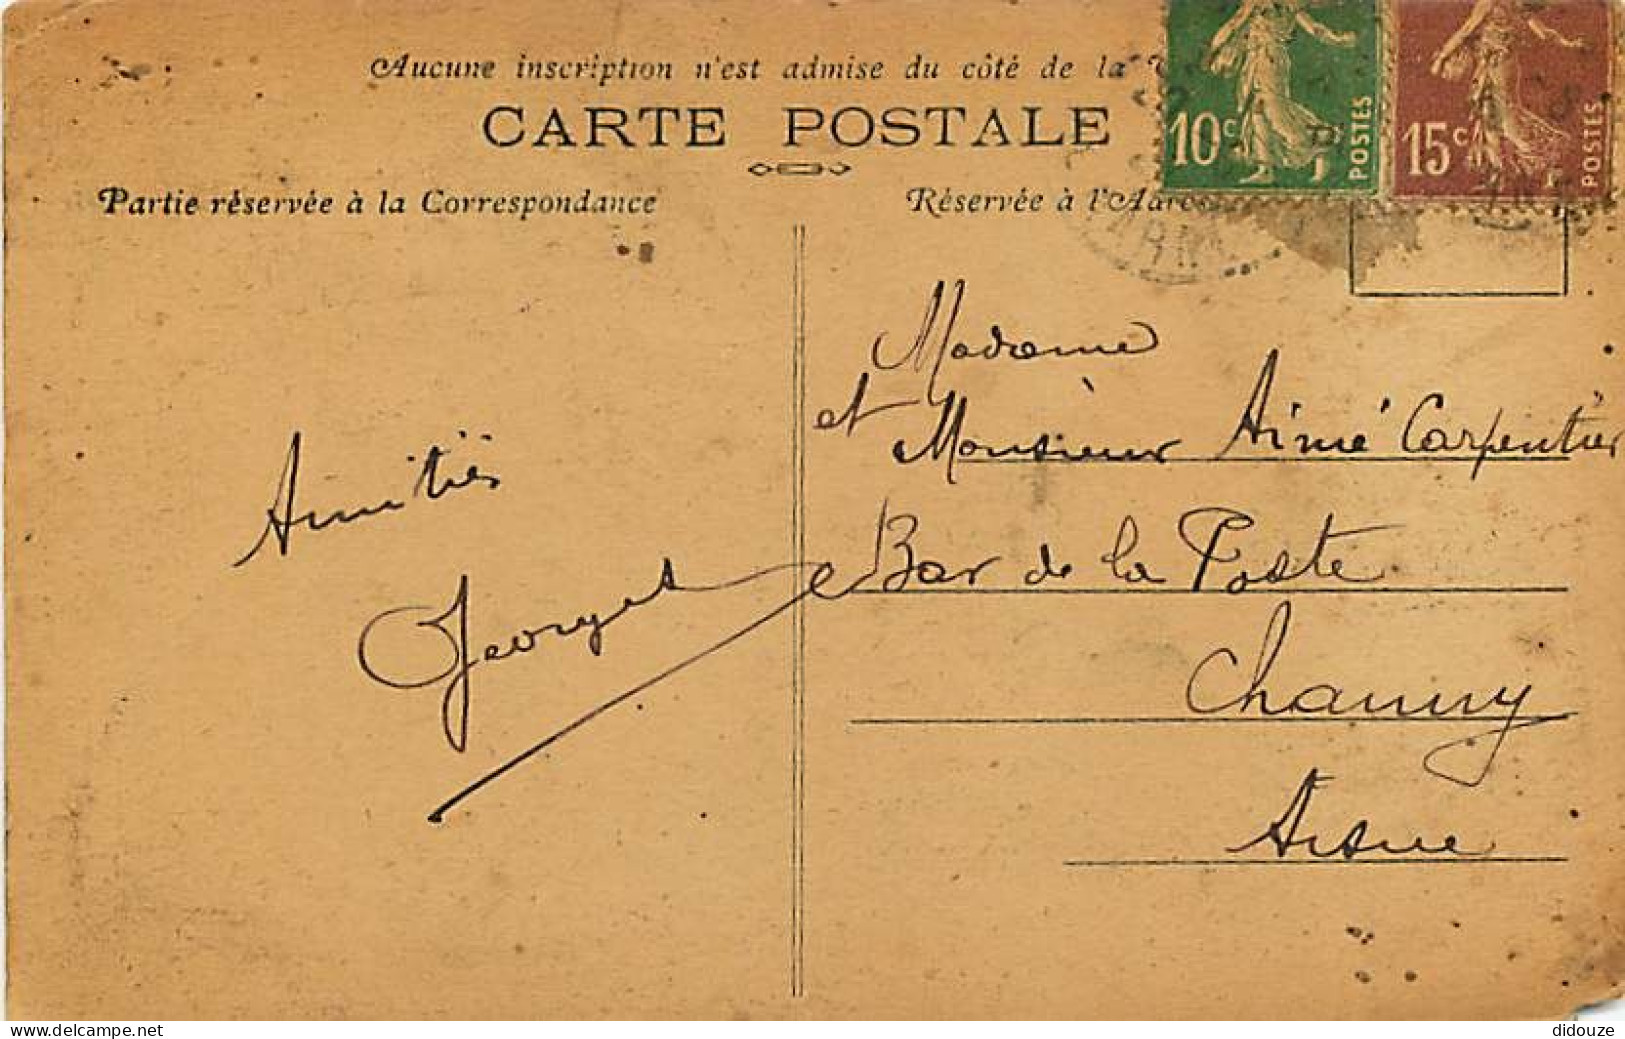 Aucune inscription n'est admise du côté de la
CARTE POSTALE
Partie réservée à la Correspondance
Réservée à
10c
POSTES
15c
POSTES
Amitiés
Georges
Madame
et Monsieur Aimé Carpentier
Bar de la Poste
Chauny
Aisne
www.delcampe.net
didouze